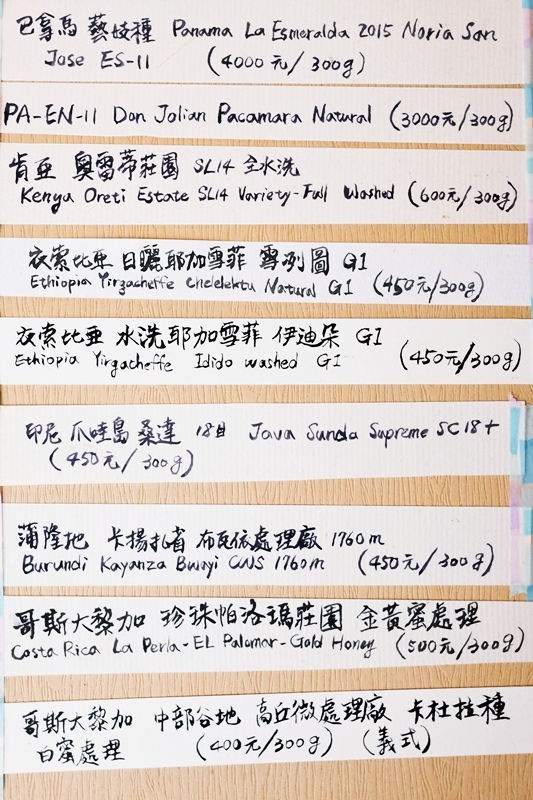 巴拿馬 藝妓種 Panama La Esmeralda 2015 Noria San
Jose ES-11 (4000元/300g)
PA-EN-11 Don Jolian Pacamara Natural (3000元/300g)
肯亚 奧雷蒂莊園 SL14 全水洗
Kenya Oreti Estate SL14 Variety-Full Washed (600元/300g)
衣索比亞 日曬耶加雪菲 雪冽圖 G1
Ethiopia Yirgacheffe Chelelektu Natural G1 (450元/300g)
衣索比亞 水洗耶加雪菲 伊迪朵 G1
Ethiopia Yirgacheffe Idido washed G1 (450元/300g)
印尼 爪哇島 桑達 18目 Java Sunda Supreme SC18+
(450元/300g)
蒲隆地 卡揚扎省 布瓦依處理廠 1760m
Burundi Kayanza Bwayi CWS 1760m (450元/300g)
哥斯大黎加 珍珠帕洛瑪莊園 金黃蜜處理
Costa Rica La Perla-EL Palomar-Gold Honey (500元/300g)
哥斯大黎加 中部谷地 高丘微處理廠 卡杜拉種
白蜜處理 (400元/300g) (義式)